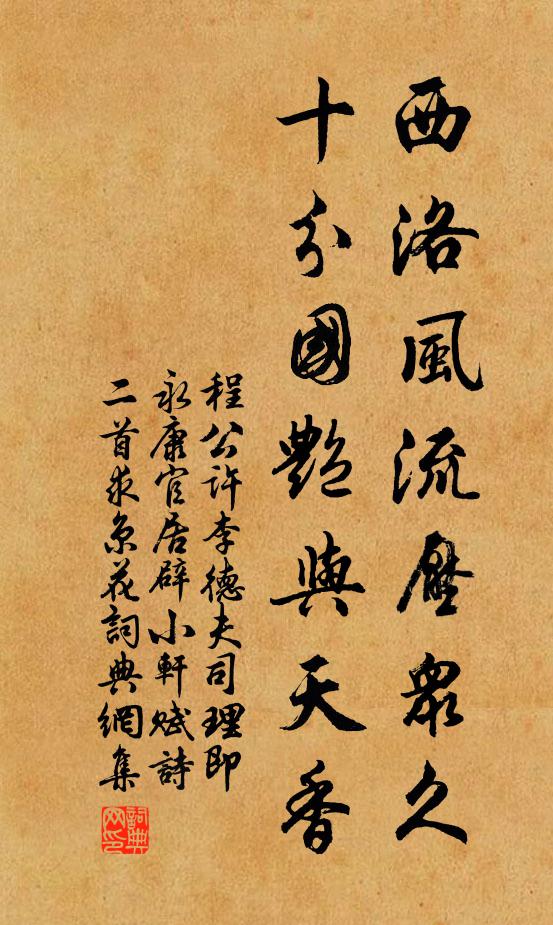 西洛風流壓眾久
十分國艷與天香
程公許李德夫司理即
永康官居辟小軒賦詩
二首求京花詞典網集
詞典
网印